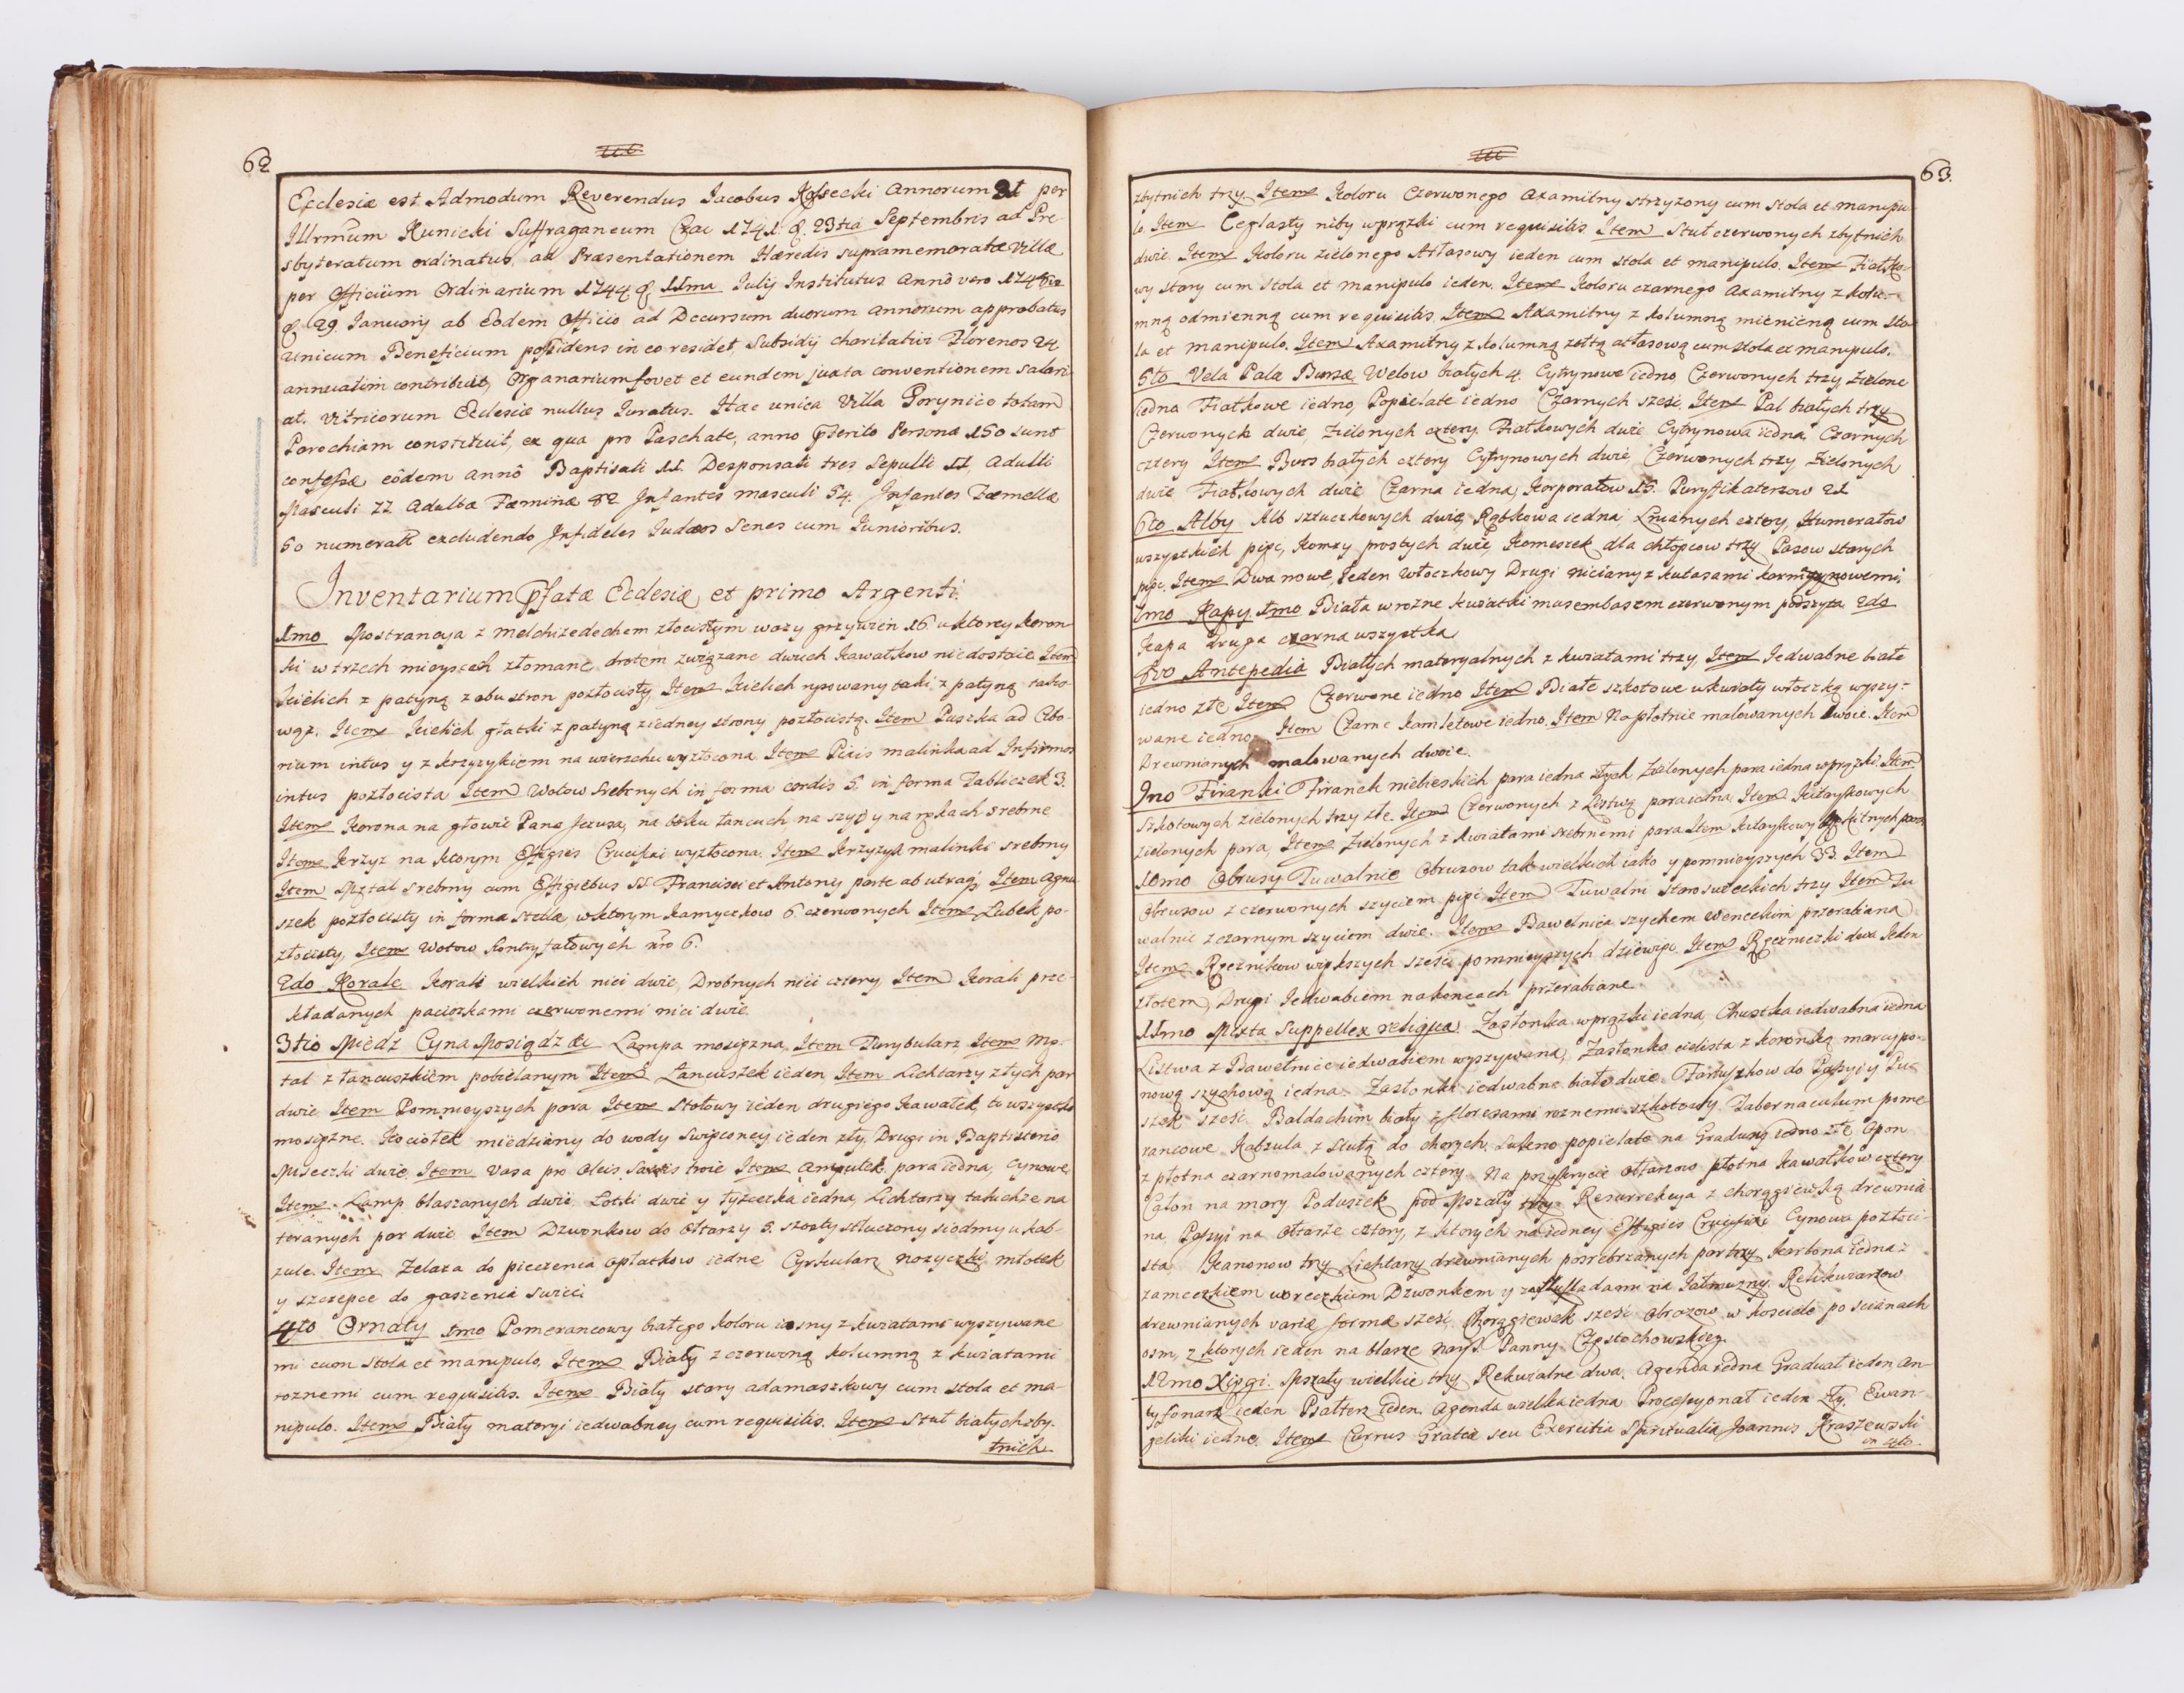 62
Ecclesiæ est Admodum Reverendus Iacobus Annorum 31 per
Illrmum Kunicki Suffraganeum Crac 1741 d. 23tia Septembris ad Pre-
sbyteratum ordinatus, ad Præsentationem Hæredis supramemoratæ Villæ
per Officium Ordinarium 1744 d. 11ma Iulij Institutus Anno vero
d. 29. Ianuarij ab Eodem Officio ad Decursum duorum annorum approbatus
unicum Beneficium possidens in eo residet, Subsidij charitativi Florenos 24
annuatim contribuit, Organarium fovet et eundem juxta conventionem salari-
at. Vitricorum Ecclesiæ nullus Iuratus. Hæc unica Villa Gorynice totam
Parochiam constituit, ex qua pro Paschate, anno pterito Personæ 150 sunt
confessæ eôdem annô Baptisati 11. Desponsati tres Sepulti 11, Adulti
Masculi 77 Adultæ Fæminæ 82 Infantes masculi 54. Infantes Fæmellæ
50 numerat excludendo Infideles Iudæos Senes cum Iunioribus.
Inventarium pfatæ Ecclesiæ, et primo Argenti.
1mo Mostrancya z Melchizedechem złocistym wazy grzywien 16 u ktorey koron-
ki w trzech mieyscach złomane drotem związane dwuch kawałkow niedostaie Item
Kielich z patyną z obu stron pozłocisty, Item Kielich rysowany taki z patyną tako-
wąż. Item Kielich gładki z patyną z iedney strony pozłocistą. Item Puszka ad Cibo-
rium intus y z krzyzykiem na wierzchu wyzłocona Item Pixis malinka ad Infirmos
intus pozłocista Item Wotow Srebrnych in forma cordis 5. in forma Tabliczek 3.
Item Korona na głowie Pana Jezusa, na boku łancuch, na szyi y na rękach srebrne
Item Krzyz na ktorym Effigies Crucifixi wyzłocona. Item Krzyzyk malinki srebrny
Item Msztal srebrny cum Effigiebus SS Francisci et Antonij parte ab utraq. Item Agnu-
szek pozłocisty in forma Stellæ w ktorym kamyczkow 6 czerwonych Item Łubek po-
złocisty, Item Wotow Kontrfałowych nro 6.
2do Korale Korali wielkich nici dwie, Drobnych nici cztery Item Korali prze-
kładanych paciorkami czerwonemi nici dwie
3tio Miedz Cyna Mosiądz &c Lampa mosięzna, Item Turybularz, Item Mę-
tal z łancuszkiem pobielanym Item Łancuszek ieden Item Lichtarzy złych par
dwie Item Pomnieyszych para Item Stołowy ieden drugiego kawałek, to wszystko
mosięzne. Kociołek miedziany do wody swięconey ieden zły, Drugi in Baptisterio
Miseczki dwie, Item Vasa pro Oleis Sacris troie Item Ampułek para iedna, cynowe
Item Lamp blaszanych dwie. Łotki dwie y łyzeczka iedna, Lichtarzy takichze na
teranych par dwie Item Dzwonkow do Ołtarzy 5. szosty stłuczony siodmy u kab-
zule. Item Zelaza do pieczenia opłatkow iedne Cyrkularz nozyczki młotek
y szczepce do gaszenia Swieci
4to Ornaty 1mo Pomerancowy białego koloru iasny z kwiatami wyszywane
mi cum stola et manipulo, Item Biały z czerwoną kolumną z kwiatami
roznemi cum requisitis. Item Biały stary adamaszkowy cum stola et ma-
nipulo. Item Biały materyi iedwabney cum requisitis. Item Stuł białych zby-
tnich
63.
zbytnich trzy. Item Koloru Czerwonego Axamitny strzyzony cum stola et manipu-
lo. Item Ceglasty niby w prązki cum requisitis Item Stuł czerwonych zbytnich
dwie Item Koloru zielonego Atłasowy ieden cum stola et manipulo. Item Fiałko-
wy stary cum stola et manipulo ieden. Item Koloru czarnego Axamitny z kolu-
mną odmienną cum requisitis. Item Axamitny z kolumną mienieną cum sto-
la et manipulo. Item Axamitny z kolumną zołtą atłasową cum stola et manipulo.
5to Vela Palæ Bursæ, Welow białych 4. Cytrynowe iedno, Czerwonych trzy, Zielone
iedno Fiałkowe iedno, Popielate iedno Czarnych szesć. Item Pal białych trzy
Czerwonych dwie, Zielonych cztery. Fiałkowych dwie, Cytrynowa iedna, Czarnych
cztery Item Burs białych cztery Cytrynowych dwie, Czerwonych trzy, Zielonych
dwie Fiałkowych dwie Czarna iedna, Korporałow 15. Puryfikaterzow 21
6to Alby Alb sztuczkowych dwie, Rąbkowa iedna, Lnianych cztery, Humerałow
wszystkich pięc, Komzy prostych dwie, Komeszek dla chłopcow trzy Pasow starych
pięc. Item Dwa nowe, Ieden włoczkowy Drugi niciany z kutasami karmazynowemi,
7mo Kapy 1mo Biała w rozne kwiatki musembasem czerwonym podszyta 2do
Kapa druga czarna wszystka
8vo Antepedia Białych materyalnych z kwiatami trzy, Item Iedwabne białe
iedno złe Item Czerwone iedno Item Białe szkotowe w kwiaty włoczką wyszy-
wane iedno. Item Czarne kamletowe iedno. Item Na płotnie malowanych dwoie. Item
Drewnianych malowanych dwoie.
9no Firanki Firanek niebieskich para iedna złych Zielonych para iedna w prązki. Item
Szkotowych zielonych trzy złe. Item Czerwonych z Listwą para iedna Item Kitaykowych
zielonych para, Item Zielonych z kwiatami srebrnemi para Item Kitaykowy para
10mo Obrusy Tuwalnie Obrusow tak wielkich iako y pomnieyszych 33. Item
Obrusow z czerwonych szyciem pięc Item Tuwalni starosw eckich trzy Item Tu-
walnie z czarnym szyciem dwie. Item Bawełnica szychem Weneckim przerabiana
Item Ręcznikow większych szesć pomnieyszych dziewięc Item Ręczniczki dwa Ieden
złotem, Drugi Iedwabiem na koncach przerabiane.
11mo Mixta Suppellex religjca. Zasłonka w prązki iedna, Chustka iedwabna iedna
Listwa z Bawełnice iedwabiem wyszywana, Zasłonka cielista z koronką marcypa-
nową szychową iedna. Zasłonki iedwabne białe dwie. Fartuszkow do Passyi y Pu-
szek szesć Baldachim biały z floresami roznemi szkotowy. Tabernaculum pome
rancowe Kabzula z Stułą do chorych, Sukno popielate na Gradusy iedno złe Opon
z płotna czarnomalowanych cztery. Na przykrycie Ołtarzow płotna kawałkow cztery
Całon na mary. Poduszek pod Mszały trzy. Resurrekcya z chorągiewką drewnia-
na, Passyi na Ołtarze cztery, z ktorych na iedney Effigies Crucifixi Cynowa pozłoci-
sta, Kanonow trzy Lichtarzy drewnianych posrebrzanych par trzy Karbona iedna z
zameczkiem woreczkiem Dzwonkem y na Jałmuzny. Relikwiarzow
drewnianych variæ formæ szesć Chorągiewek szesć Obrazow w kosciele po scianach
osm, z ktorych ieden na blasze Nayś. Panny Częstochowskiey.
12mo Xięgi. Mszały wielkie trzy Rekwialne dwa. Agenda iedna Graduał ieden An-
tyfonarz ieden Psałterz ieden. Agenda wielka iedna Processyonał ieden zły. Ewan-
geliki iedne. Item Currus Gratiæ seu Exercitia Spiritualia Joannis Kraszewski
in 4to.